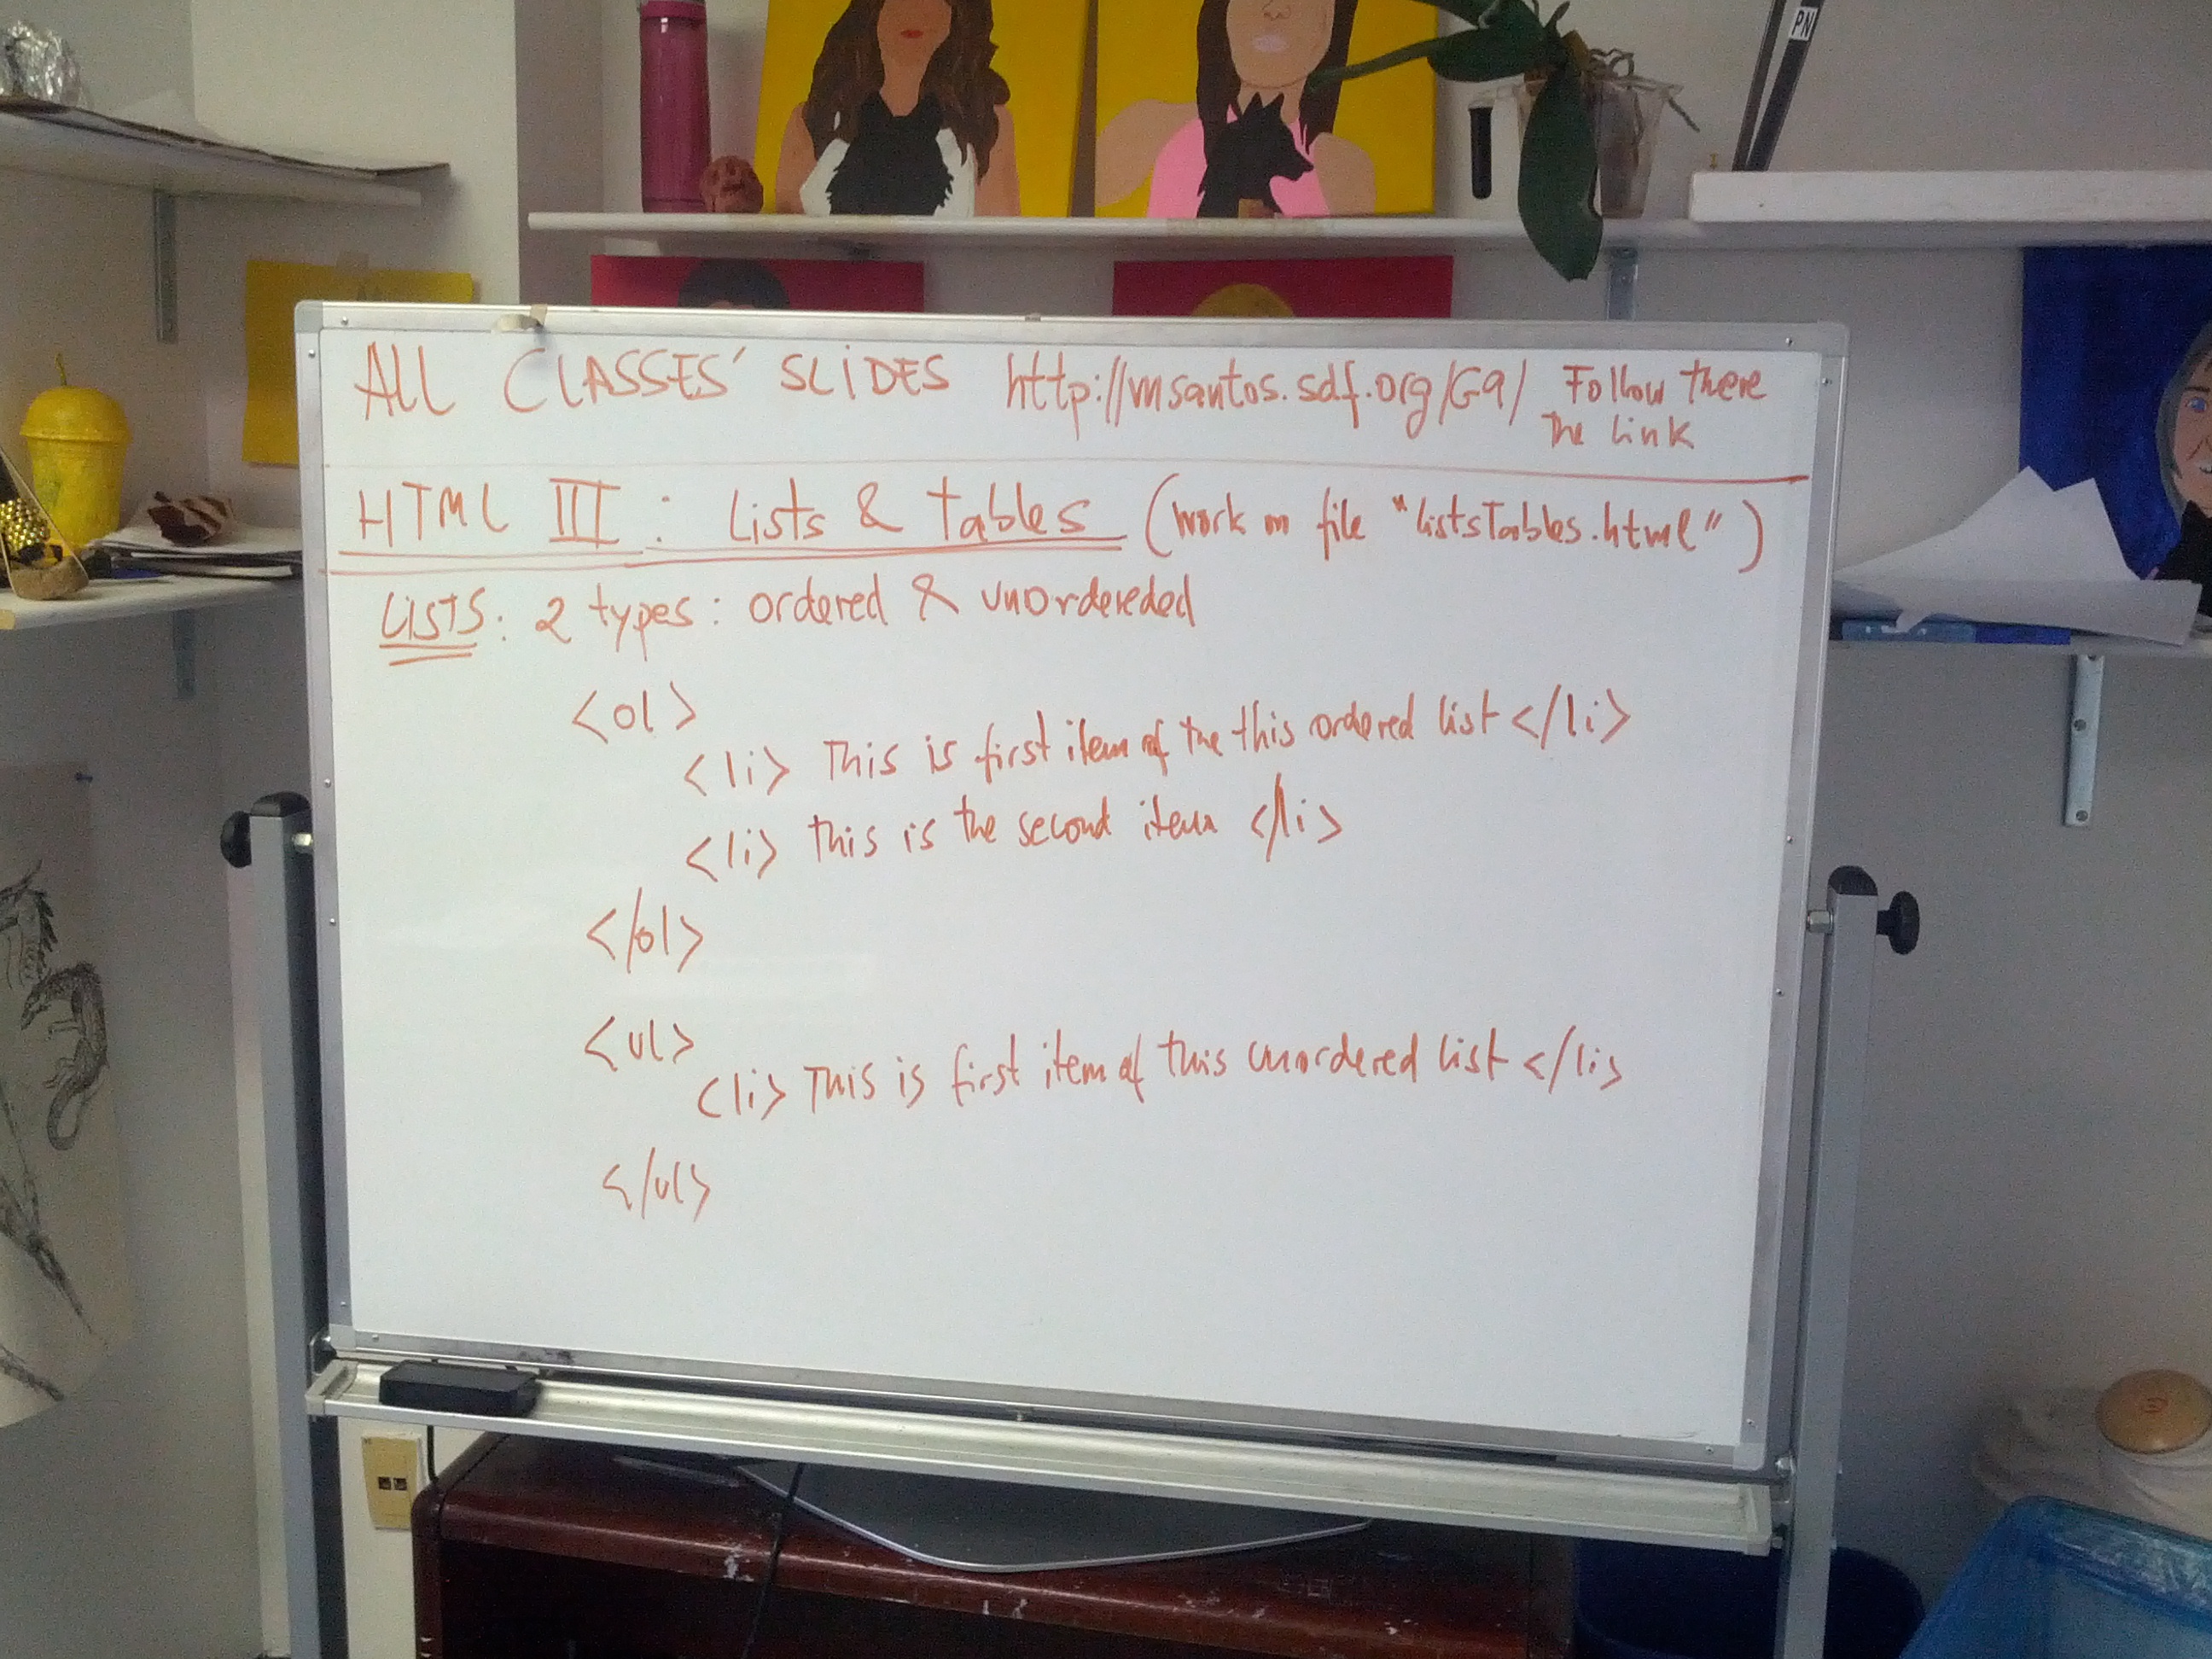 PN
ALL CLASSES' SLIDES http://msantos.sdf.org/G9/ Follow there
The link
HTML III : Lists & Tables (work on file "listsTables.html")
LISTS: 2 types: ordered & unordereded
<ol>
<li> This is first item of the this ordered list </li>
<li> this is the second item </li>
</ol>
<ul>
<li> This is first item of this unordered list </li>
</ul>